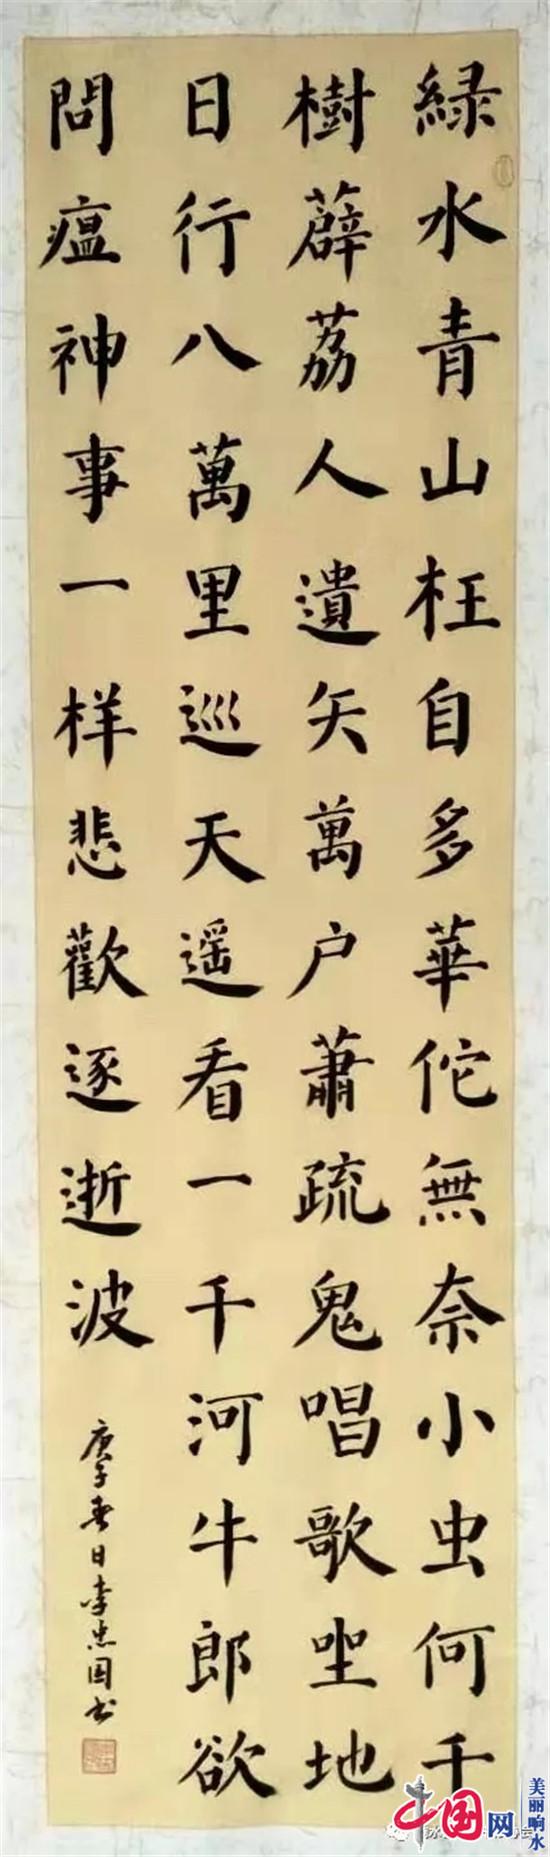 緑水青山枉自多華佗無奈小虫何千
樹薜荔人遺矢萬户蕭疏鬼唱歌坐地
日行八萬里巡天遥看一千河牛郎欲
問瘟神事一样悲歡逐逝波
庚子春日李忠国书
中国网
美丽响水